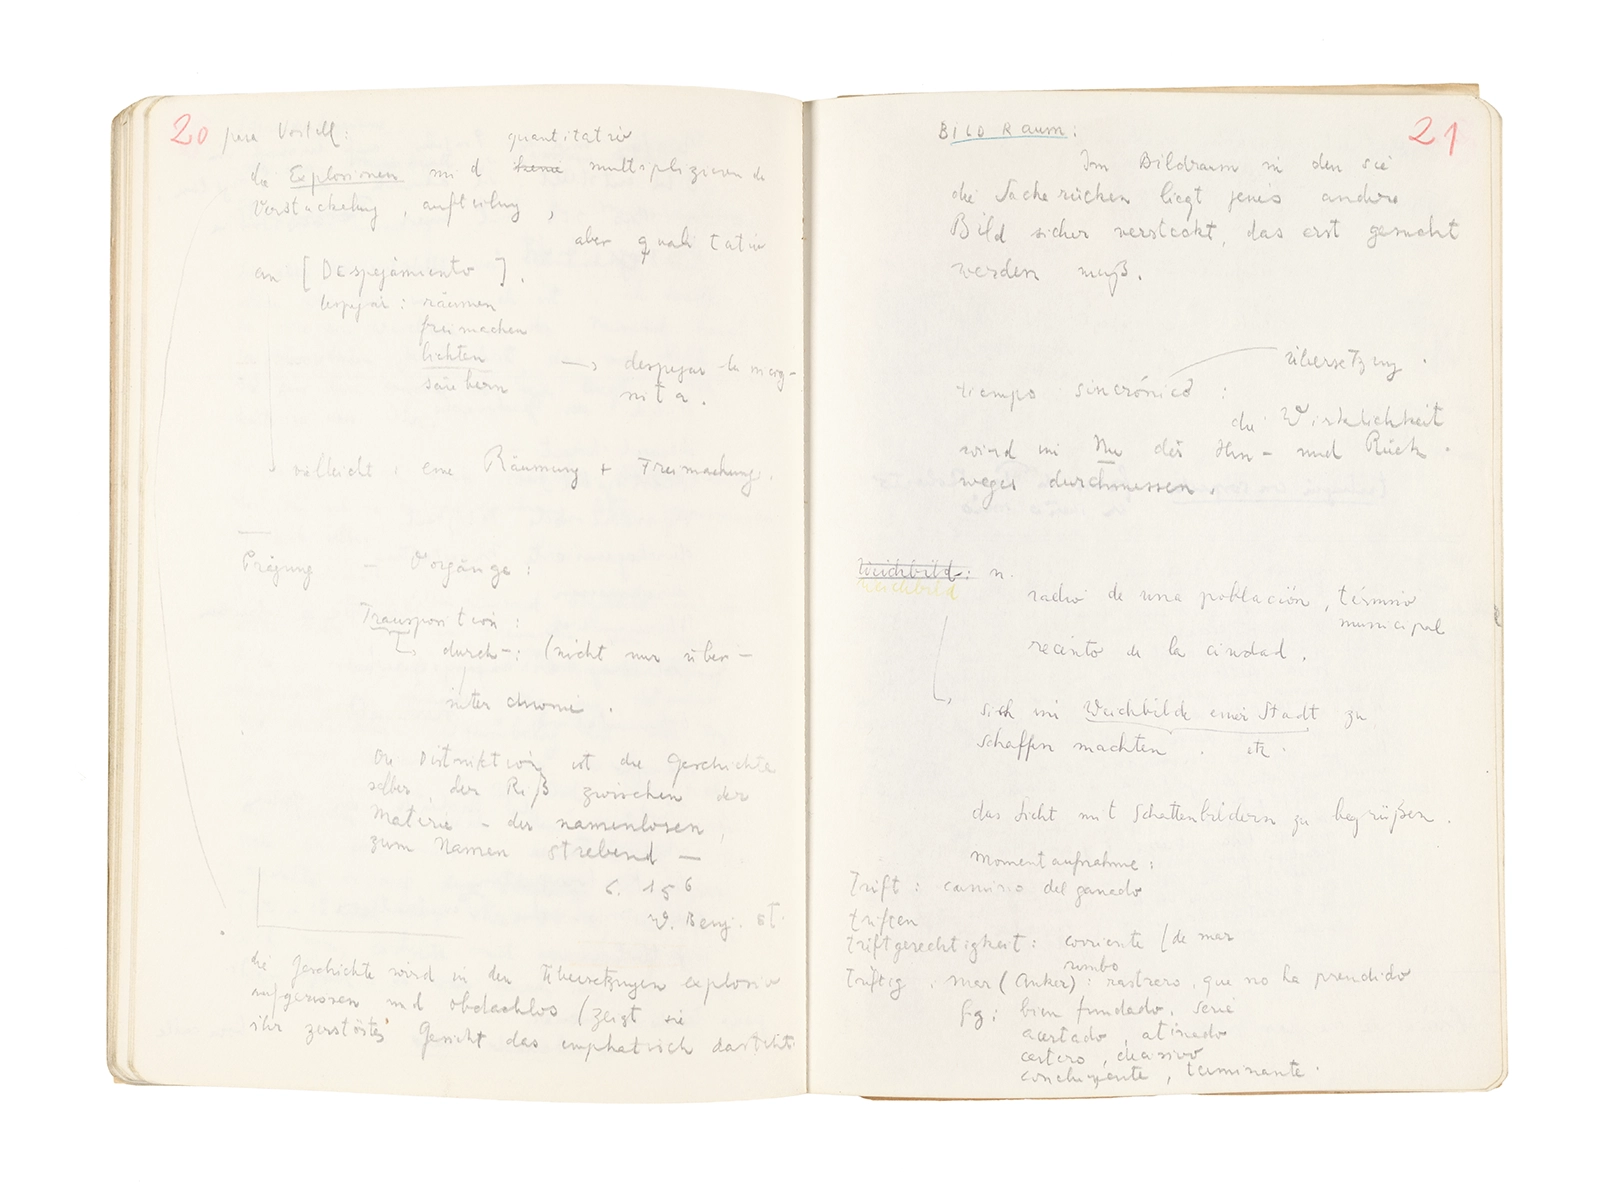 20
para Vostell:
quantitativ
die Explosionen sind keine multiplizierende
Verstückelung, aufteilung,
aber qualitativ
an [Despejamiento].
despejar: räumen
freimachen
lichten
säubern → despejar la incóg-
nita.
vielleicht: eine Räumung + Freimachung.
Prägung – Vorgänge:
Transposition:
durch-: (nicht nur über-
inter
die Distinktion ist die Geschichte
selber, der Riß zwischen der
Materie – der namenlosen,
zum Namen strebend –
S. 156
W. Benj. st.
die Geschichte wird in den Übersetzungen explosiv
aufgerissen und obdachlos (zeigt sie
ihr zerstörtes Gesicht das emphatisch
21
BILD Raum:
Im Bildraum in den sie
die Sache rücken liegt jenes andere
Bild sicher versteckt, das erst gesucht
werden muß.
übersetzung.
tiempo sincrónico:
die Wirklichkeit
wird im Nu des Hin- und Rück-
weges durchmessen.
Weichbild: n.
Weichbild
radio de una población, término
municipal
recinto de la ciudad.
sich im Weichbilde einer Stadt zu
schaffen machten. etc.
das Licht mit Schattenbildern zu begrüßen.
Momentaufnahme:
Trift: camino del ganado
triften
triftgerechtigkeit: corriente (de mar
rumbo
triftig: mar (Anker): rastrero, que no ha prendido
fig: bien fundado, serie
acertado, atinado
certero, decisivo
concluyente, terminante.